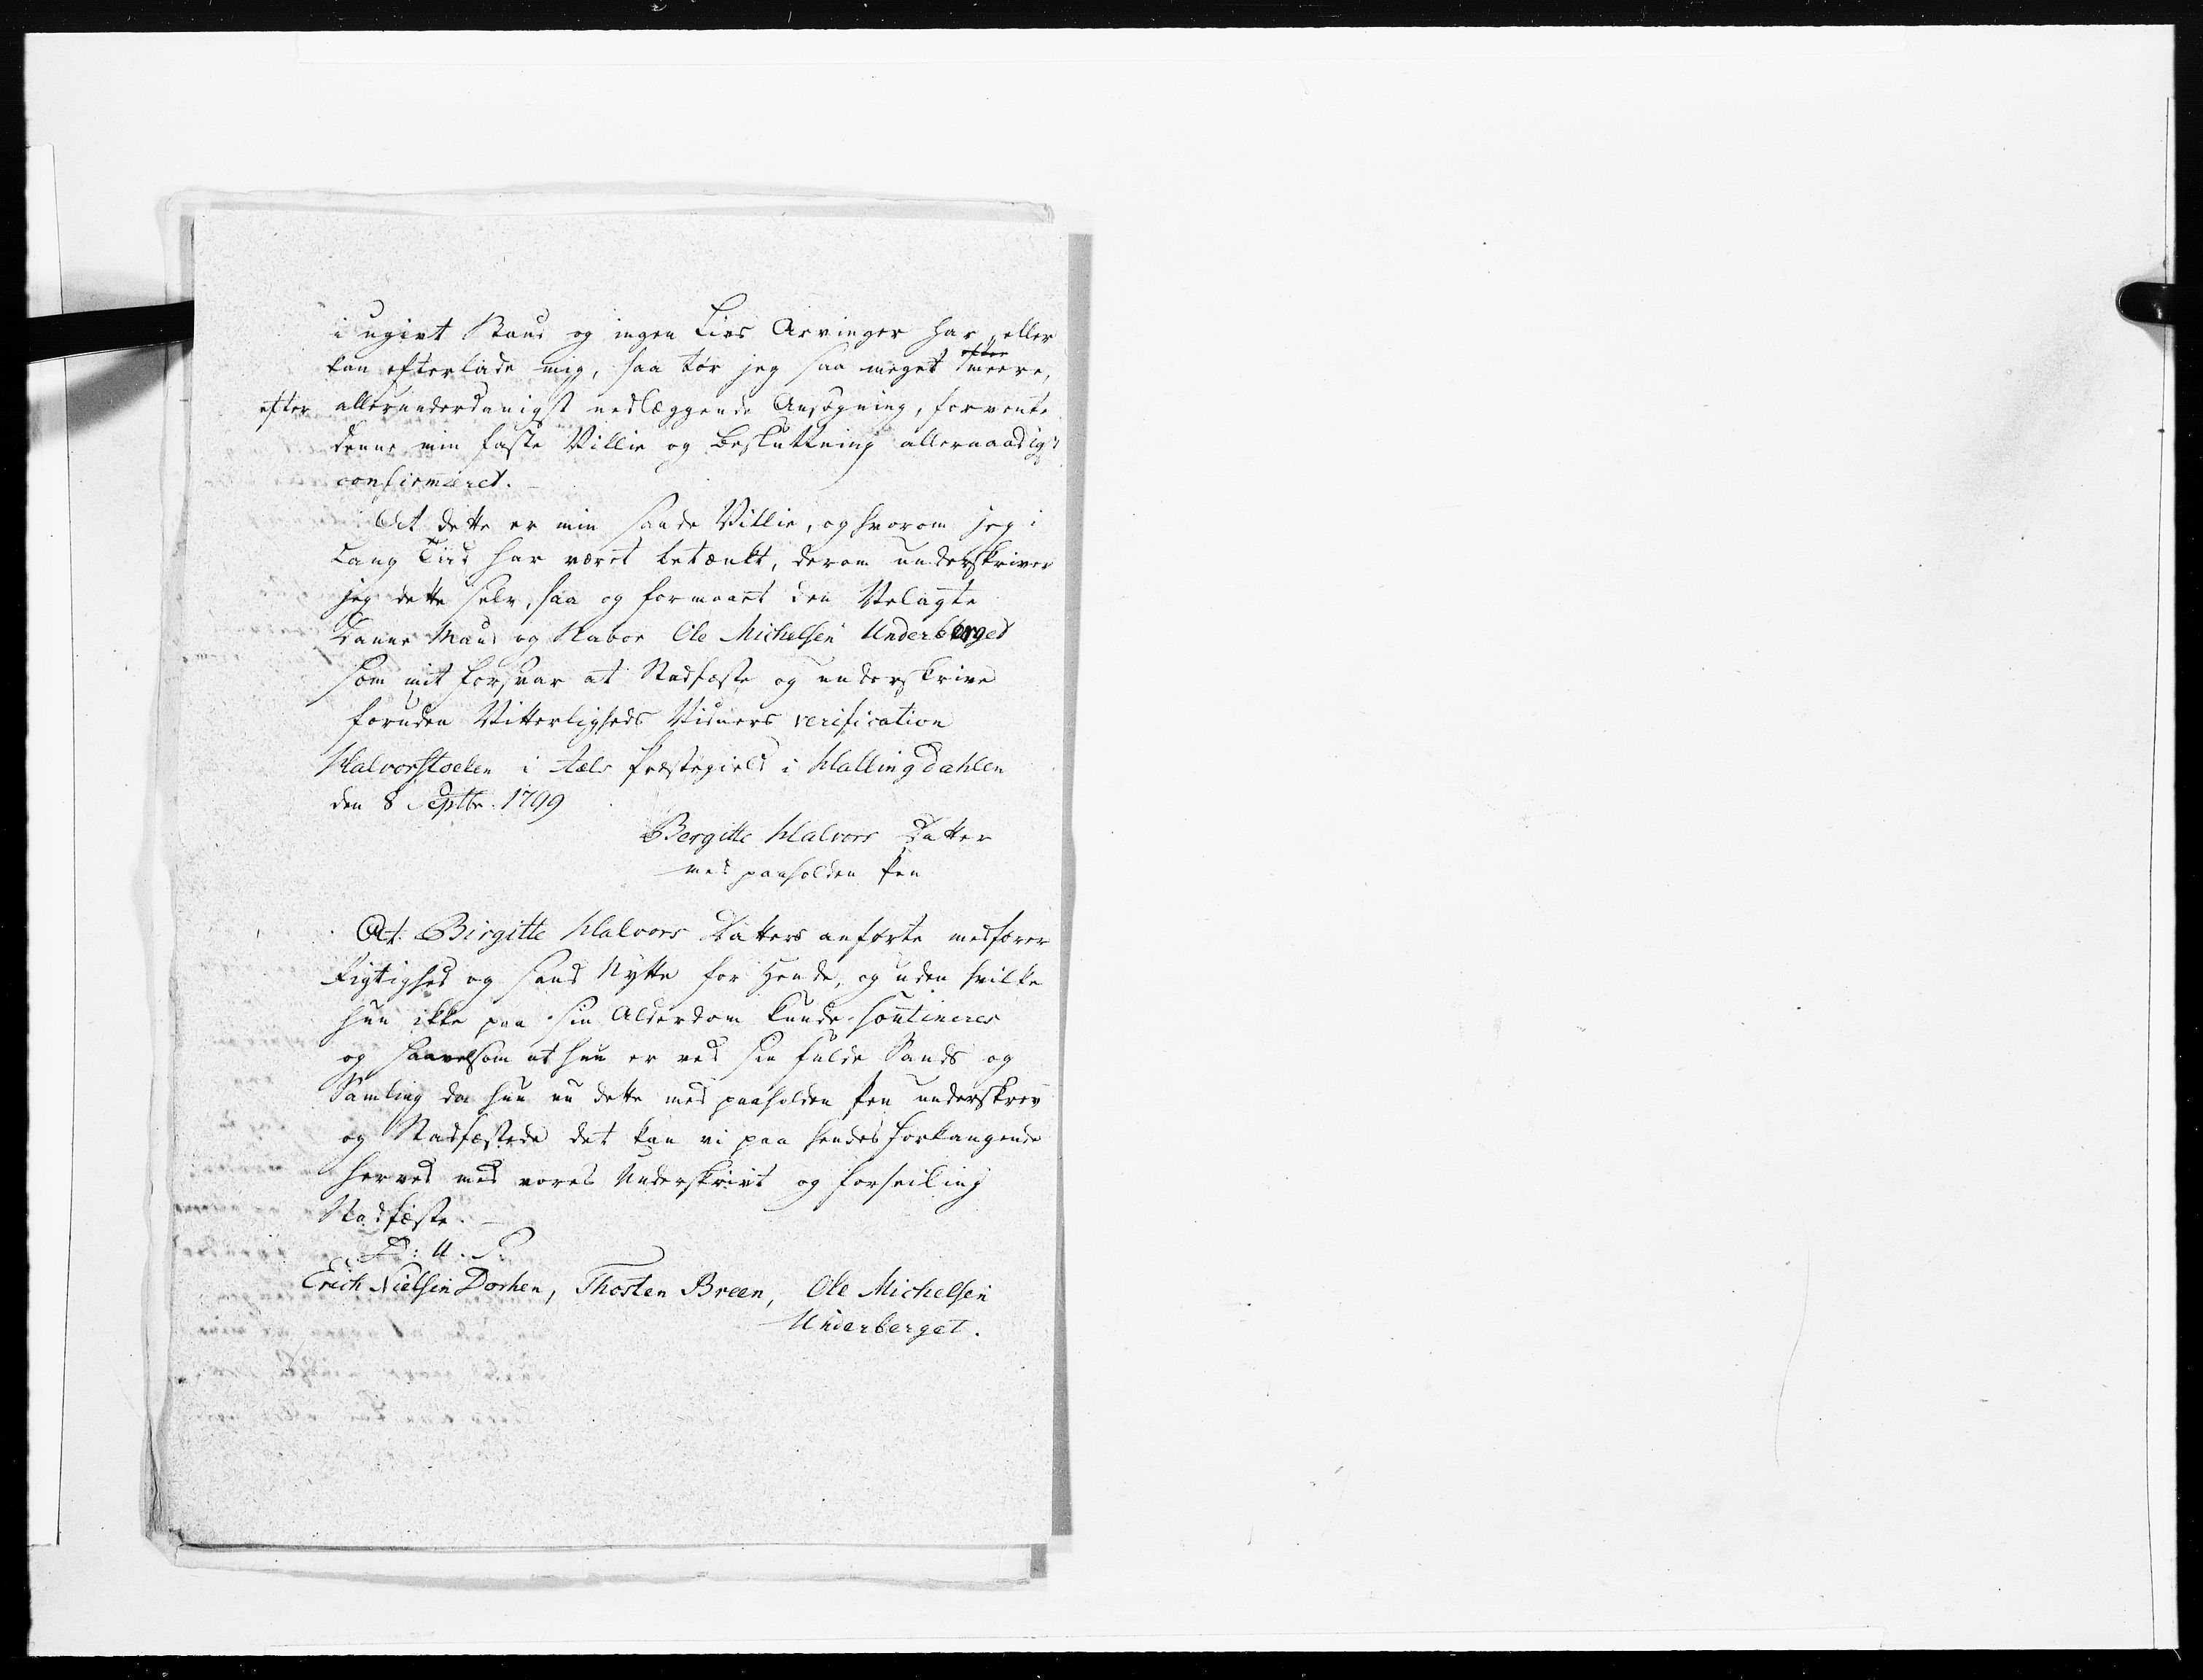 i ugivt Stand og ingen Livs Arvinger har, eller
kan efterlade mig, saa tør jeg saa meget meere,
efter allerunderdanigst nedlæggende Ansøgning, forvente
denne min faste Villie og Beslutning allernaadigst
confirmeret.
At dette er min sande Villie, og hvorom jeg i
Lang Tiid har været betænkt, derom underskriver
jeg dette selv, saa og formaaet den Velagte
Danne Mand og Naboe Ole Michelsen Underberget
som mit Forsvar at Stadfæste og underskrive
foruden Vitterligheds Vidners verification
Halvorstoelen i Aals Præstegield i Hallingdahlen
den 8 Septbr. 1799
Bergitte Halvors Datter
med paaholden Pen
At Birgitte Halvors Datters anførte medfører
Rigtighed og sand Nytte for Hende, og uden hvilke
hun ikke paa sin Alderdom kunde soutineres
og saavelsom at hun er ved sin fulde Sands og
Samling da hun nu dette med paaholden Pen underskrev
og Stadfæstede det kan vi paa hendes Forlangende
herved med vores Underskrivt og Forseiling
Stadfæste.
D: U. S.
Erich Nielsen Dorhen, Thosten Breen, Ole Michelsen
Underberget.